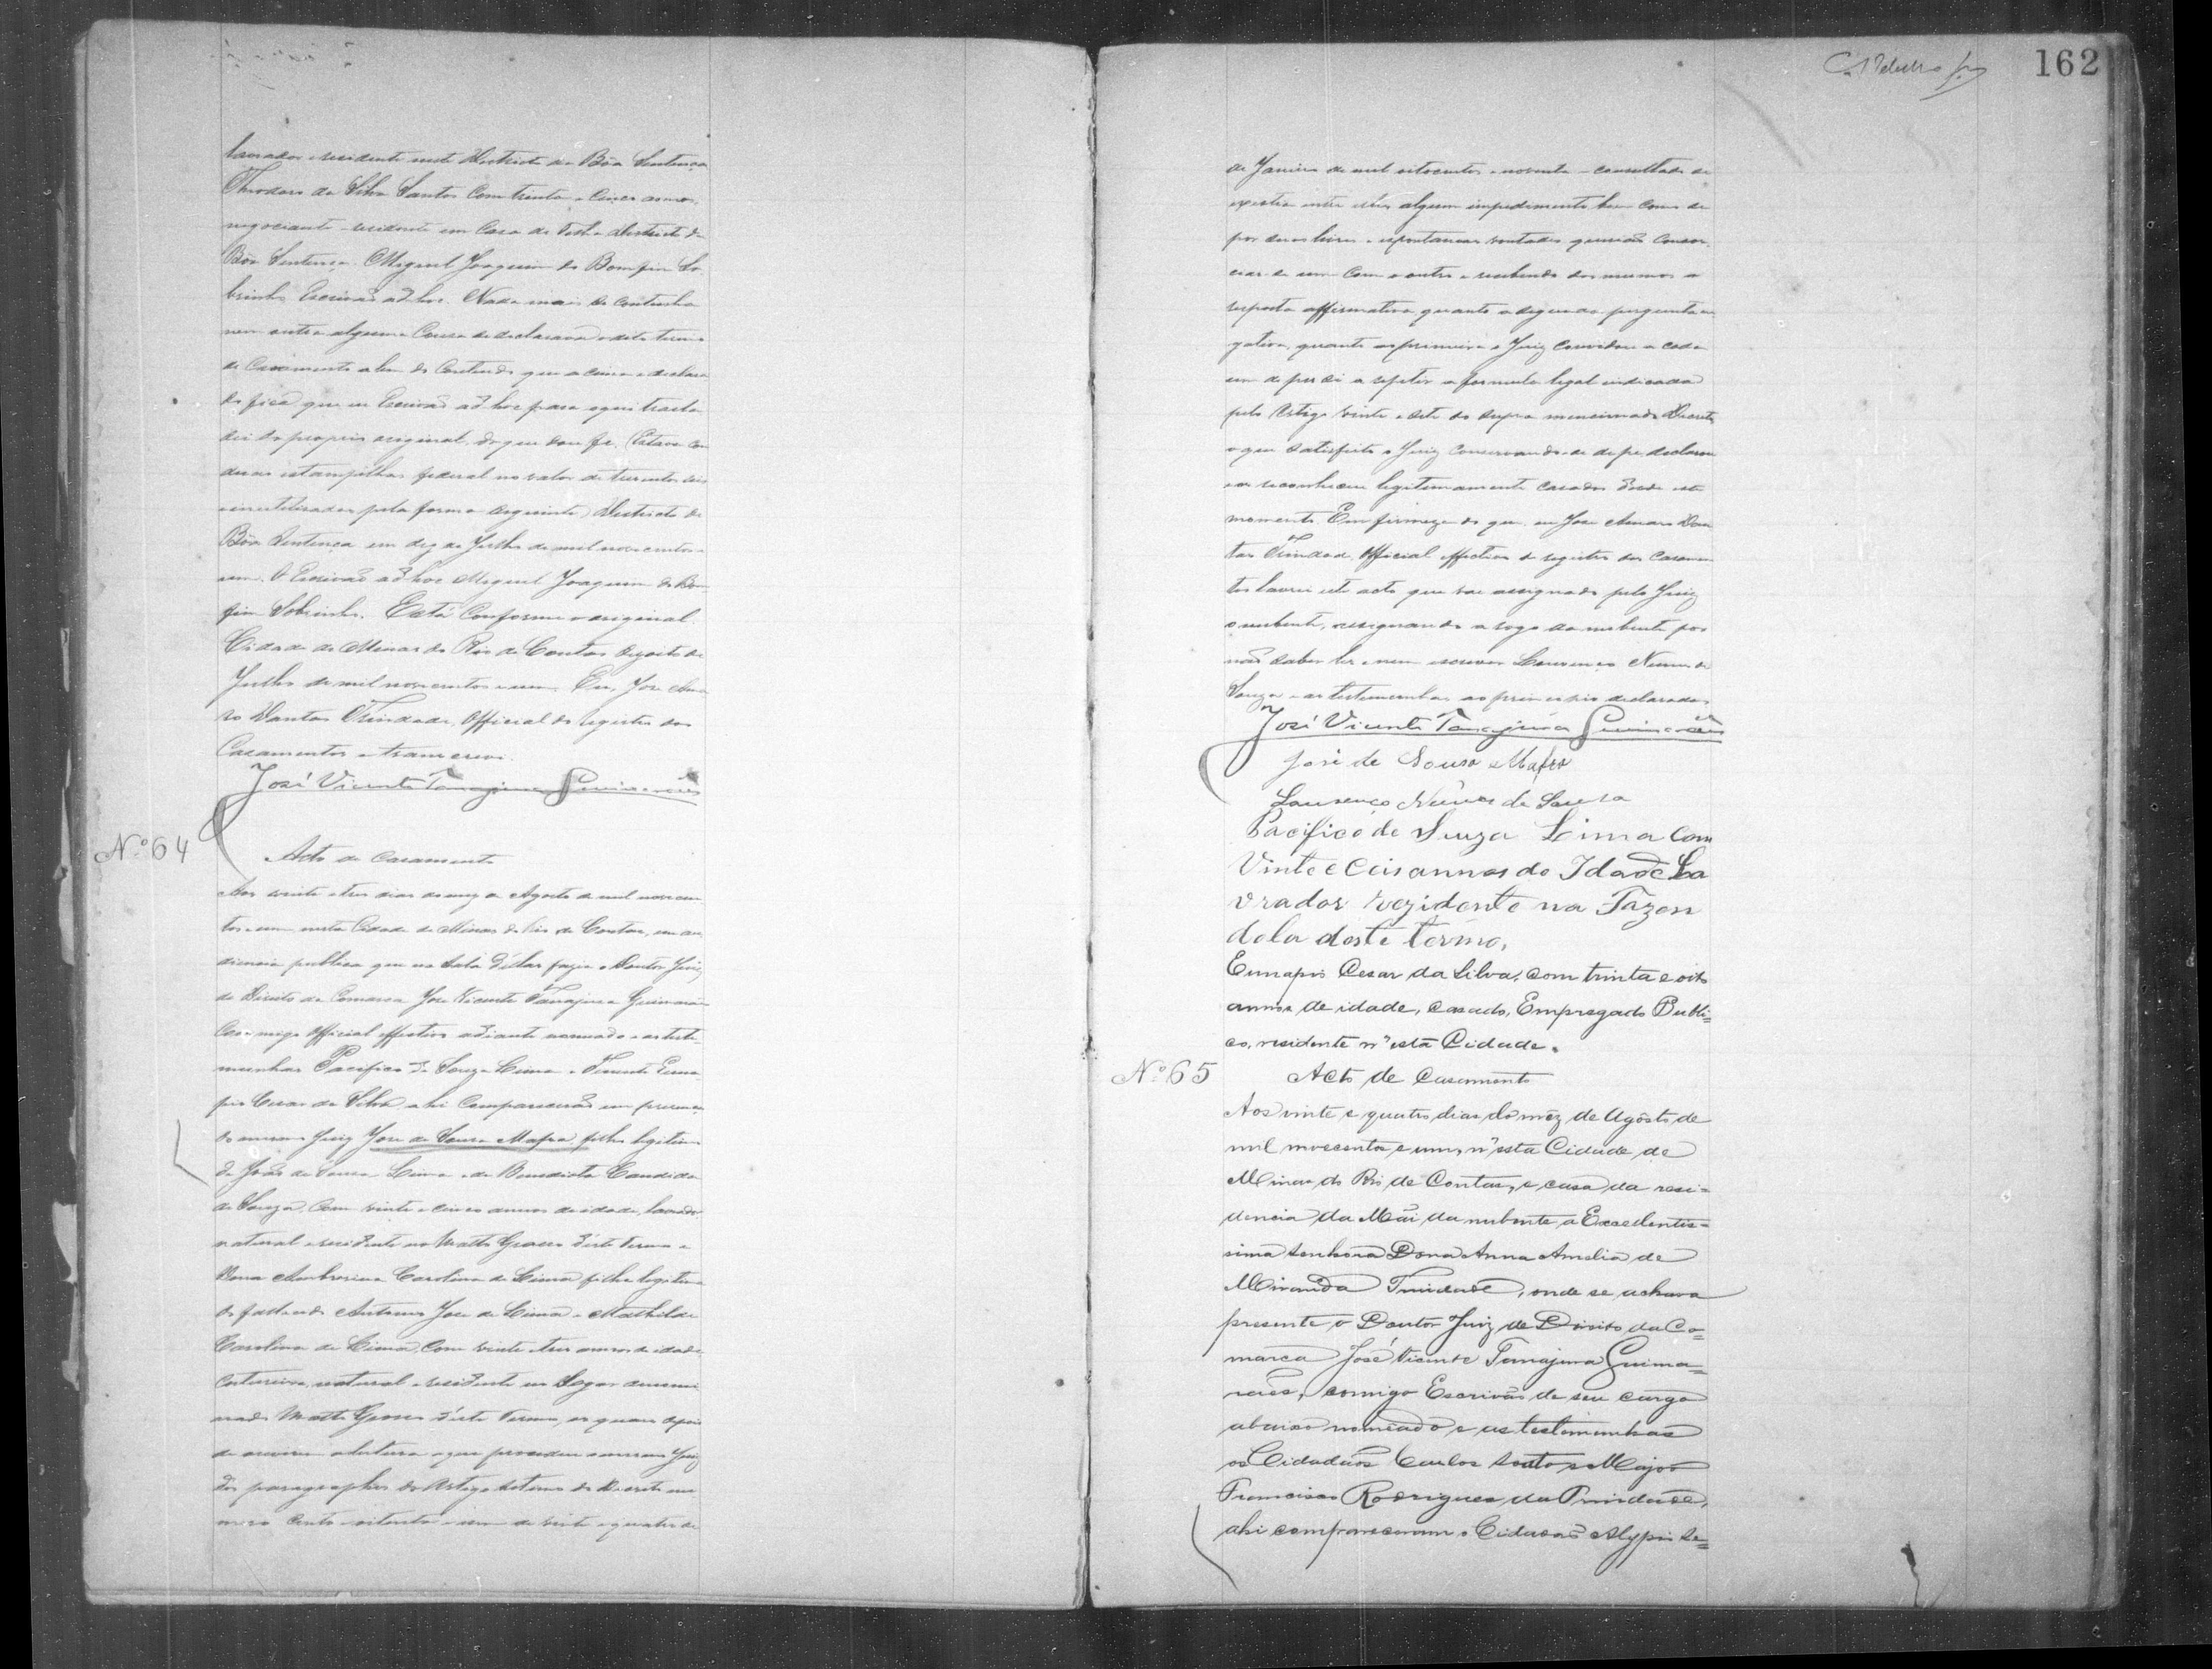 lavrador residente neste Districto da Bôa Sentença
Theodoro da Silva Santos com trinta e cinco annos,
negociante residente em Casa de Telha districto da
Bôa Sentença. Miguel Joaquim do Bomfim So
brinho Escrivaõ ad hoc. Nada mais se continha
nem outra alguma Cousa se declarava o dito termo
de Casamento alem do Contendo que acima e declara
do fica que eu Escrivaõ ad hoc para aqui trasla
dei do proprio original, do que dou fe. (Estava com
duas estampilhas federal no valor de trezentos reis
inutilizadas pela forma seguinte) Districto da
Bôa Sentença em dez de Julho de mil novecentos e
um. O Escrivaõ ad hoc Miguel Joaquim do Bom
fim Sobrinho. Está Conforme o original.
Cidade de Minas do Rio de Contas dezoito de
Julho de mil novecentos e um. Eu, Jose Ama
ro Dantas Trindade, Official do registro dos
Casamentos o transcrevi.
José Vicente Tanajura Guimarães
Nº 64
Acto de Casamento
Aos vinte e tres dias do mez de Agosto de mil novecen
tos e um nesta Cidade de Minas do Rio de Contas, em au
diencia publica que na Sala d'ellas fazia o Doutor Juiz
de Direito da Comarca Jose Vicente Tanajura Guimarães
Comigo Official effectivo adiante nomeado e as teste
munhas Pacifico de Souza Lima e Tenente Euna
pio Cesar da Silva, ahi Compareceraõ em presença
do mesmo Juiz Jose de Sousa Mafra filho legitimo
de João de Sousa Lima e de Benedicta Candida
de Souza, Com vinte e cinco annos de idade, lavrador
natural e residente no Matto Grosso d'este Termo e
Dona Ambrosina Carolina de Lima filha legitima
do fallecido Antonio Jose de Lima e Mathilde
Carolina de Lima, Com vinte e tres annos de idade
Costureira, natural e residente no Lugar denomi
nado Matto Grosso d'este Termo, os quaes depois
de ouvirem a leitura a que procedeu o mesmo Juiz
dos paragraphos do Artigo setimo do Decreto nu
mero Cento e oitenta e um de vinte e quatro de
162
de Janeiro de mil oitocentos e noventa e consultado se
existia entre elles algum impedimento bem como se
por suas livres e espontaneas vontades queriaõ Consor
ciar-se um Com o outro e recebendo dos mesmos a
resposta affirmativa, quanto a segunda pergunta e ne
gativa, quanto a primeira o Juiz Convidou a cada
um de per si a repetir a formula legal indicada
pelo Artigo vinte e sete do supra mencionado Decreto
o que satisfeito o Juiz Conservando-se de pe, declarou
e os reconheceu legitimamente casados desde este
momento. Em firmeza do que, eu Jose Amaro Dan
tas Trindade, Official effectivo do registro dos Casamen
tos lavrei este acto que vae assignado pelo Juiz
o nubente, assignando a rogo da nubente por
naõ saber ler e nem escrever Lourenço Nunes de
Souza e as testemunhas ao principio declaradas
José Vicente Tanajura Guimarães
José de Sousa Mafra
Lourenço Nunes de Sousa
Pacifico de Souza Lima Com
Vinte e Ceis annos de Idade La
vrador rezidente na Fazen
dola deste termo.
Eunapio Cesar da Silva, com trinta e oito
annos de idade, casado, Empregado Publi=
co, residente n'esta Cidade.
Nº 65
Acto de Casamento
Aos vinte e quatro dias do mêz de Agôsto de
mil novecentos e um, n'esta Cidade de
Minas do Rio de Contas, e casa da resi=
dencia da Mãi da nubente a Excellentis=
sima Senhora Dona Anna Amelia de
Miranda Trindade, onde se achava
presente o Doutor Juiz de Direito da Co=
marca José Vicente Tanajura Guima=
rães, comigo Escrivão de seu cargo
abaixo nomeado e as testemunhas
os Cidadãos Carlos Souto e Major
Francisco Rodrigues da Trindade,
ahi compareceram o Cidadão Alypio Se=